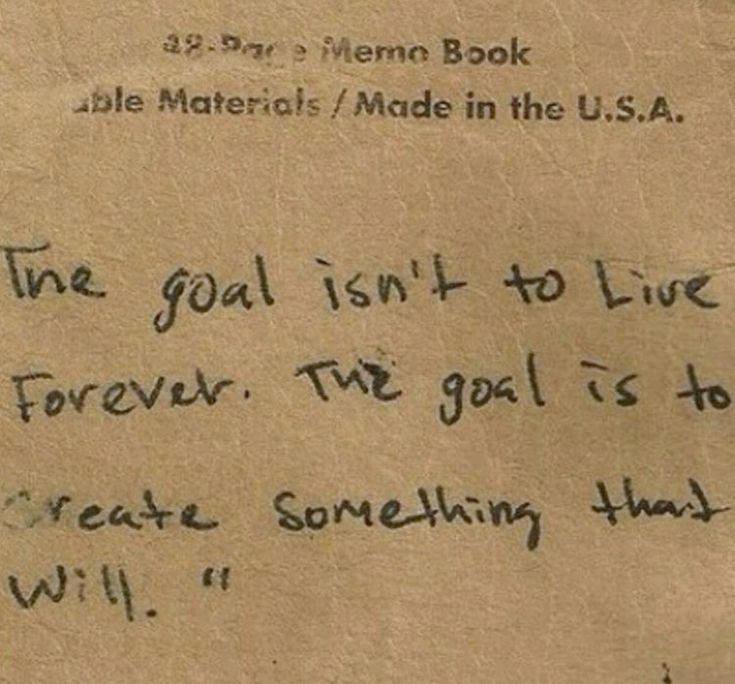 48-Page Memo Book
able Materials / Made in the U.S.A.
The goal isn't to Live
Forever. The goal is to
Create Something that
Will. "